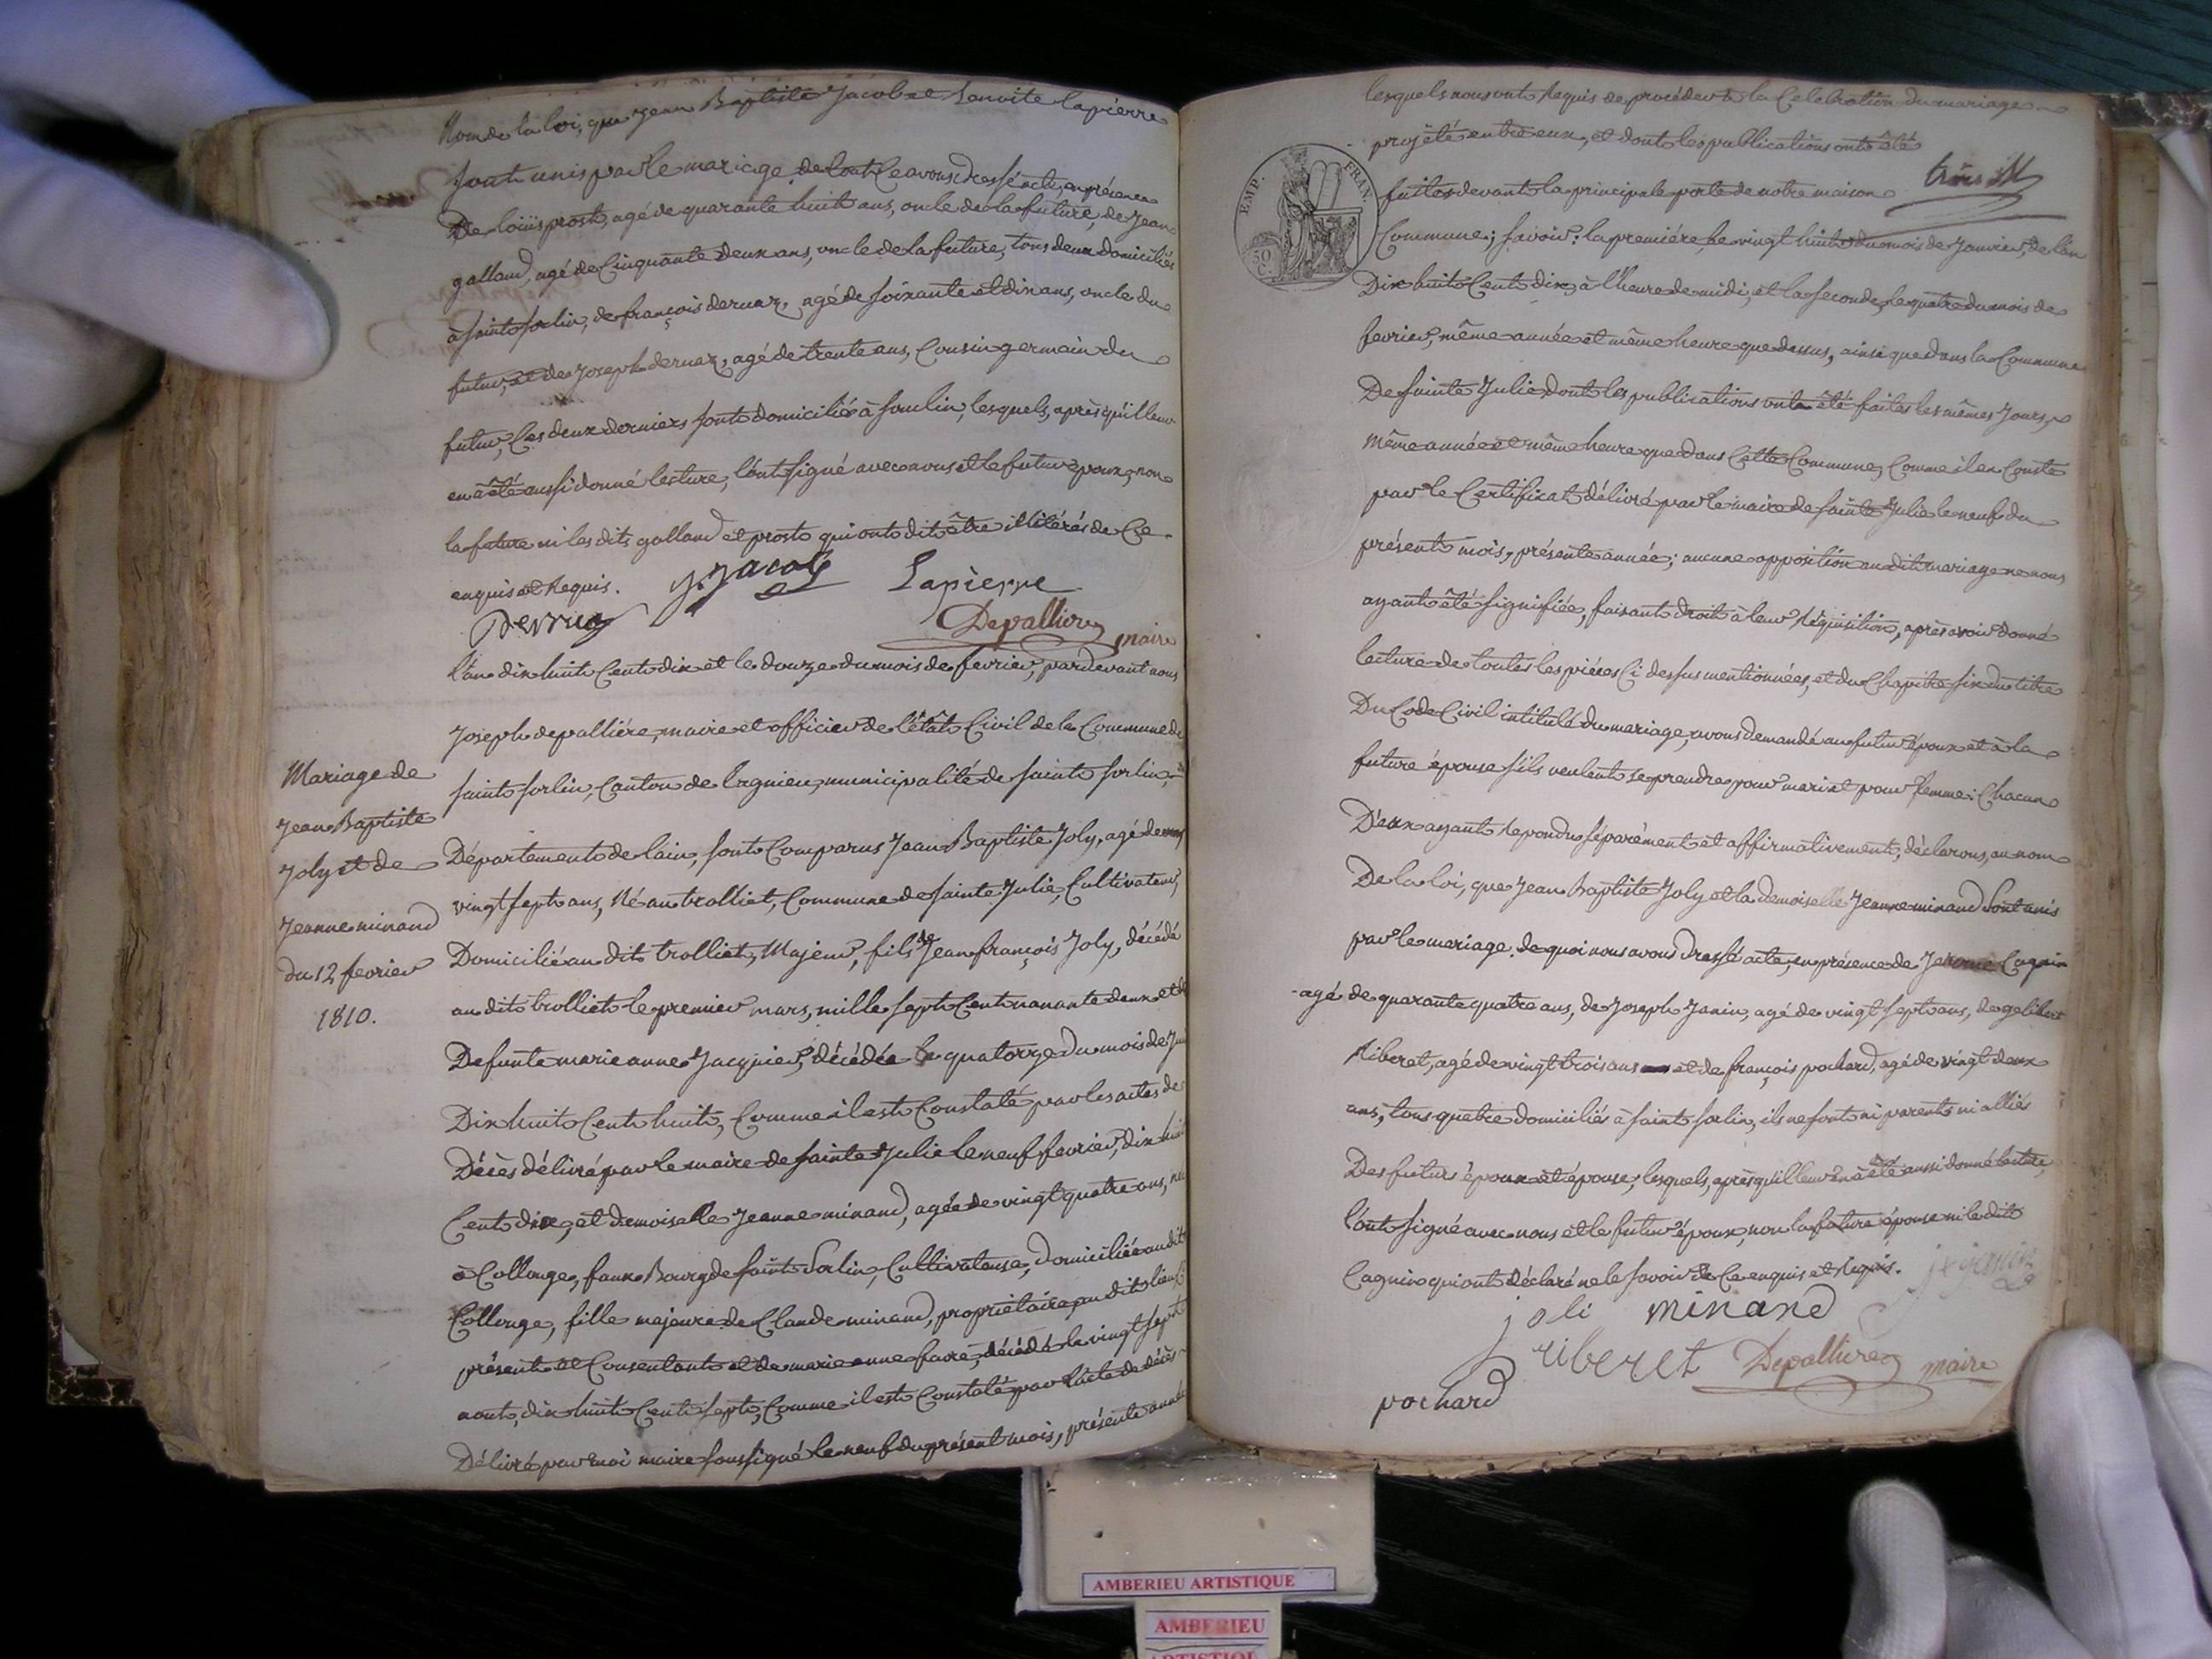 Nom de la loi, que jean Baptiste Jacob et Benoite lapierre
sont unis par le mariage. de tout ce avons dressé acte, en présence
De loüis prost, agé de quarante huit ans, oncle de la future, de Jean
galland, agé de Cinquante deux ans, oncle de la future, tous deux domiciliés
à saint sorlin, de françois dervaz, agé de soixante et dix ans, oncle du
futur, et de Joseph dervaz, agé de trente ans, Cousin germain du
futur, Les deux derniers sont domiciliés à souclin, lesquels, après qu'il leur
en a été aussi donné lecture, l'ont signé avec nous et le futur époux, non
la future ni les dits galland et prost qui ont dit être illitérés de Ce
enquis et Requis. J. Jacob Lapierre
Derruaz Depalliere maire
l'an dix huit Cent dix et le douze du mois de fevrier, pardevant nous
Joseph depalliére, maire et officier de l'état Civil de la Commune de
saint sorlin, Canton de lagnieu, municipalité de saint sorlin,
Département de lain, sont Comparus Jean Baptiste Joly, agé de
vingt sept ans, Né au trolliet, Commune de sainte Julie, Cultivateur,
Domicilié au dit trolliet, Majeur, fils de Jean françois Joly, décédé
au dit trolliet le premier mars, mille sept Cent nonante deux et de
Defunte marie anne Jacquier, décédée le quatorze du mois de
Dix huit Cent huit, Comme il est Constaté par les actes de
Décès délivré par le maire de sainte Julie le neuf fevrier, dix huit
Cent dix, et demoiselle Jeanne minand, agée de vingt quatre ans, née
à Collonge, faux Bourg de saint Sorlin, Cultivateuse, domiciliée au dit
Collonge, fille majeure de Claude minand, propriétaire au dit lieu,
présent et Consentant et de marie anne favre, décédée le vingt sept
aout, dix huit Cent sept, Comme il est Constaté par l'acte de décès
Délivré par moi maire soussigné le neuf du présent mois, présente année
Mariage de
Jean Baptiste
Joly et de
Jeanne minand
du 12 fevrier
1810.
lesquels nous ont Requis de procéder à la Célébration du mariage
projété entre eux, et dont les publications ont été
faites devant la principale porte de notre maison
Commune; savoir: la premiére, le vingt huit du mois de Janvier, de l'an
Dix huit Cent dix, à l'heure de midi, et la seconde, le quatre du mois de
fevrier, même année et même heure que dessus, ainsi que dans la Commune
De sainte Julie dont les publications ont été faites les mêmes Jours,
même année et même heure que dans Cette Commune, Comme il en Conste
par le Certificat délivré par le maire de sainte Julie le neuf du
présent mois, présente année; aucune opposition au dit mariage ne nous
ayant été signifiée, faisant droit à leur Réquisition, après avoir donné
lecture de toutes les piéces Ci dessus mentionnées, et du Chapitre six du titre
Du Code Civil intitulé du mariage, avons demandé au futur époux et à la
future épouse s'ils veulent se prendre pour mari et pour femme: Chacun
D'eux ayant Repondu séparément et affirmativement, déclarons, au nom
De la loi, que Jean Baptiste Joly et la demoiselle Jeanne minand Sont unis
par le mariage. de quoi nous avons dressé acte, en présence de Jerome Cagnin
agé de quarante quatre ans, de Joseph Janin, agé de vingt sept ans, de
Riberet, agé de vingt trois ans et de françois pochard, agé de vingt deux
ans, tous quatre domiciliés à saint sorlin, ils ne sont ni parents ni alliés
Des futurs époux et épouse, lesquels, après qu'il leur en a été aussi donné lecture,
l'ont signé avec nous et le futur époux, non la future épouse ni le dit
Cagnin qui ont déclaré ne le savoir de Ce enquis et Requis.
joli minand
riberet Depalliere maire
pochard
EMP. FRAN.
50 C.
AMBERIEU ARTISTIQUE
AMBERIEU
ARTISTIQUE